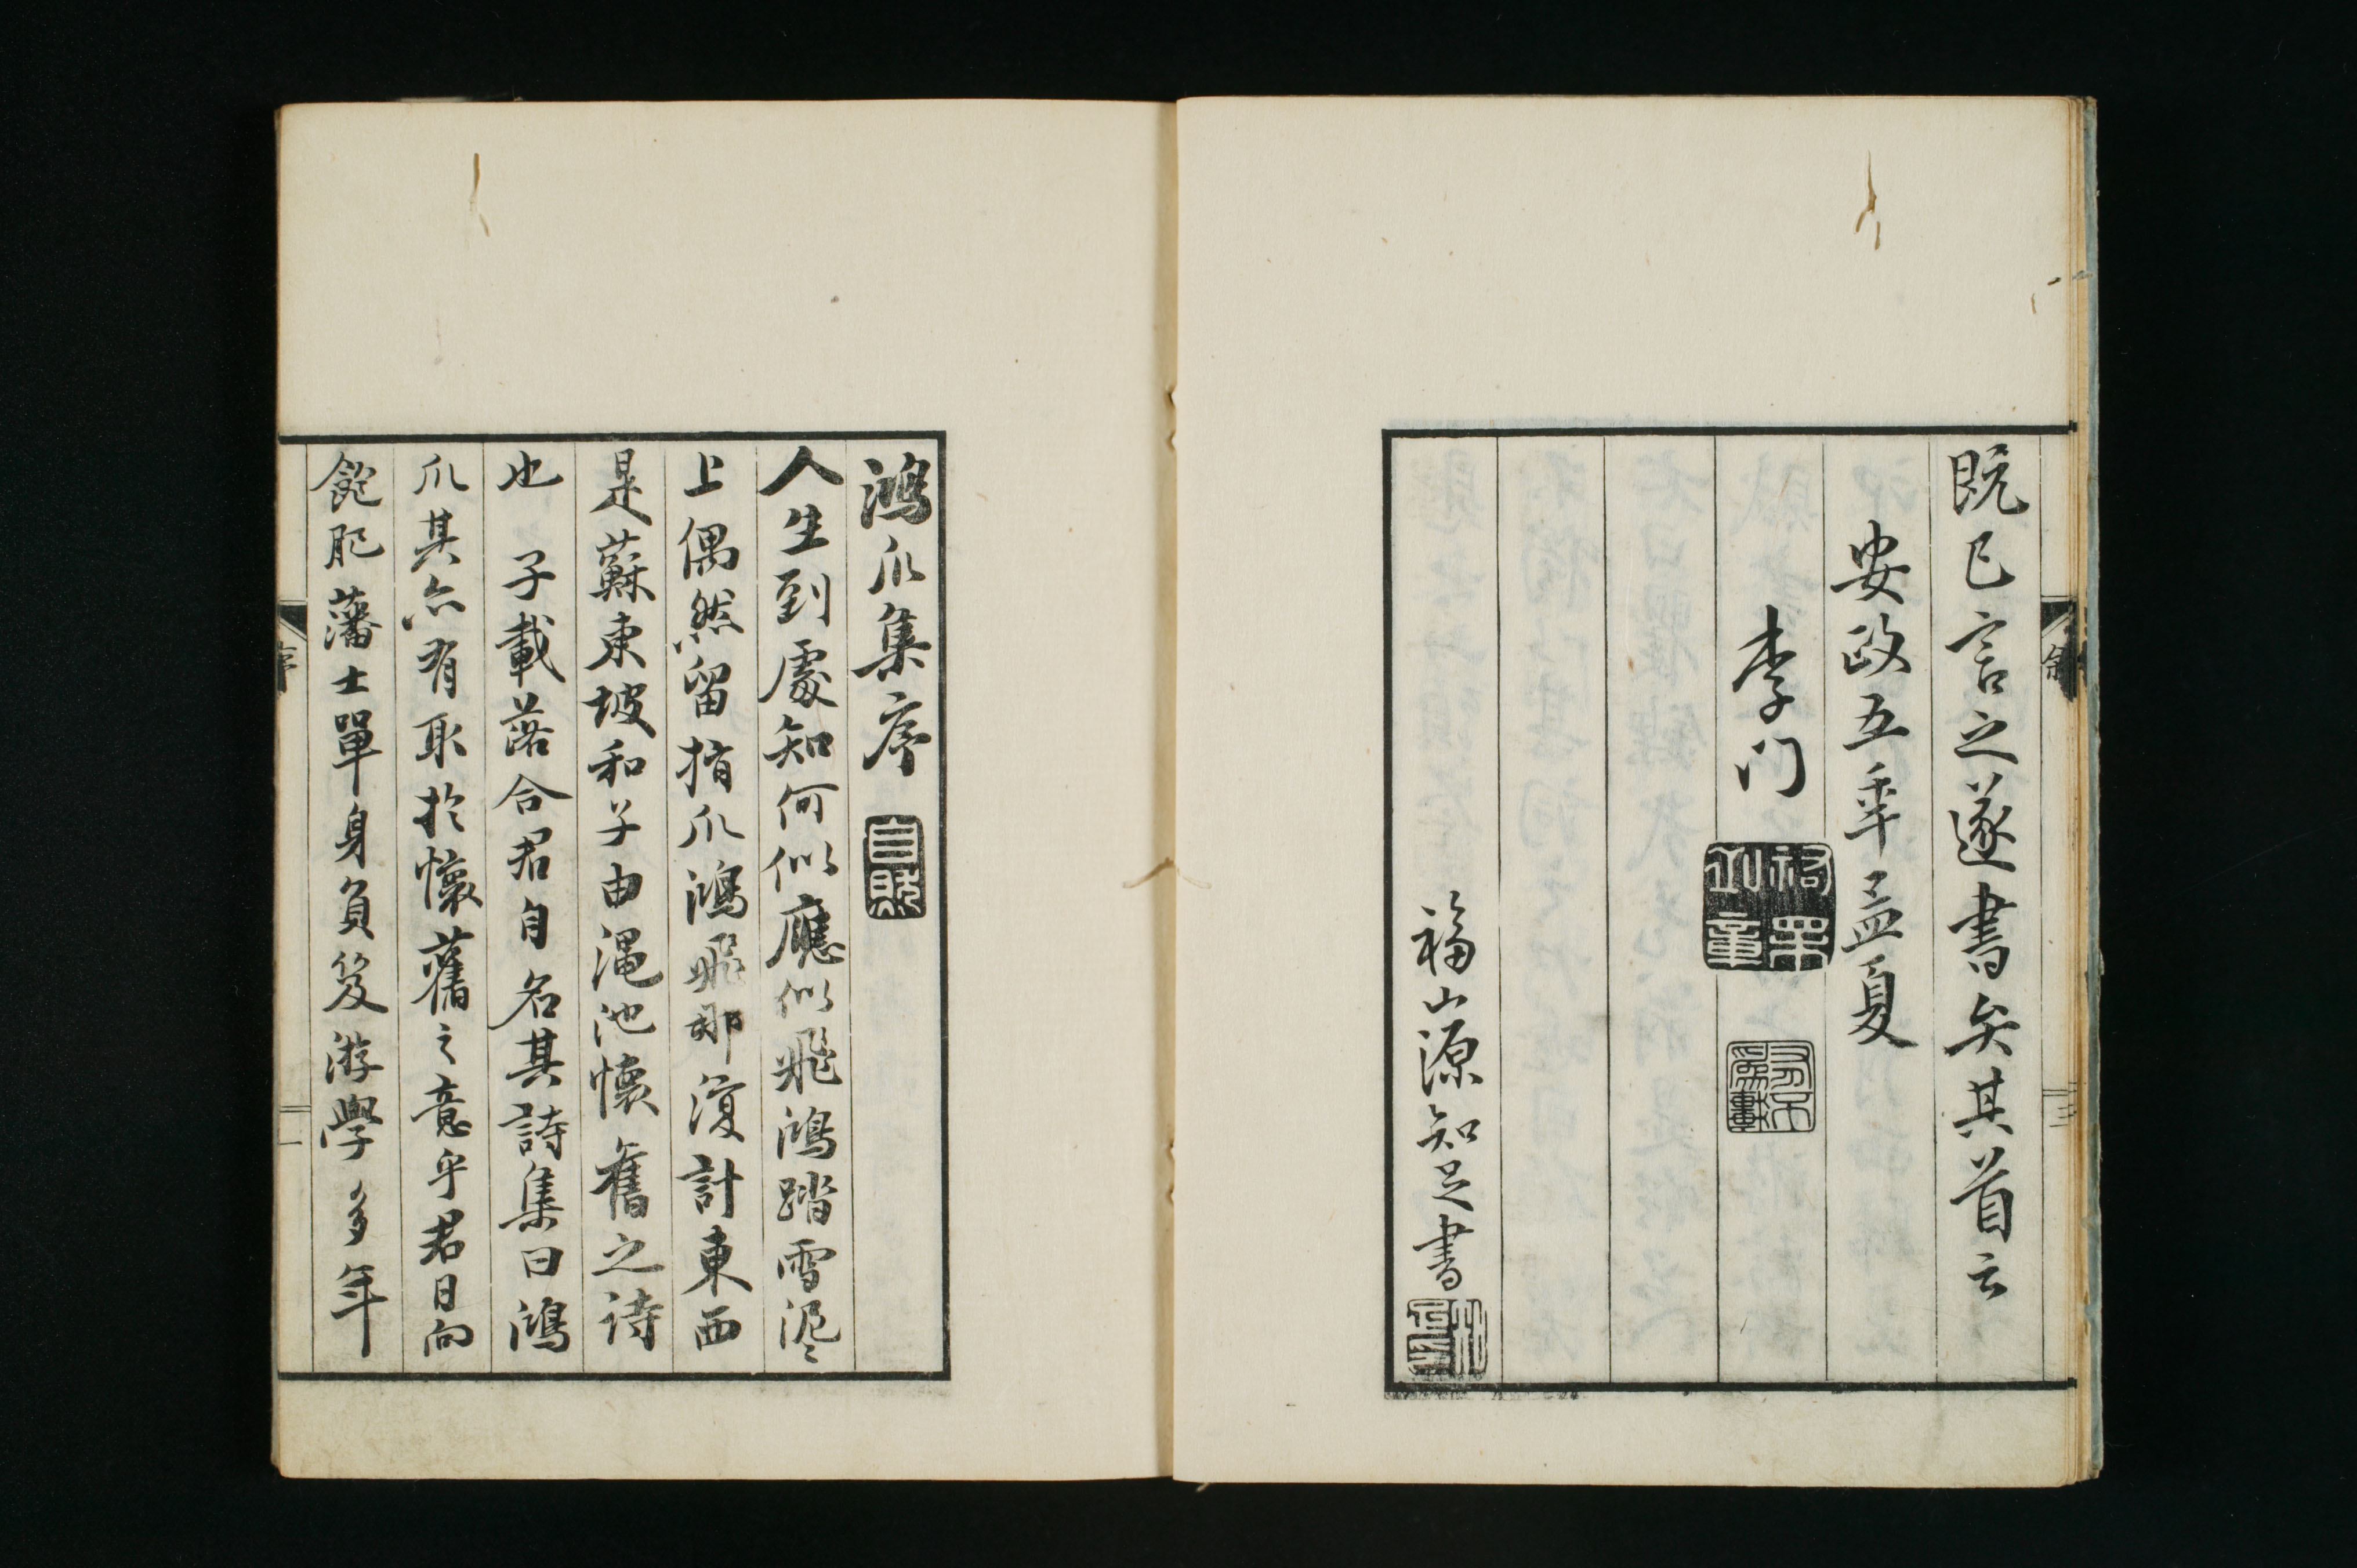 既已言之遂書矣其首云
安政五年孟夏
李门
福山源知足書
鴻爪集序
人生到處知何似應似飛鴻踏雪泥〻
上偶然留指爪鴻飛那復計東西
是蘇東坡和子由澠池懷舊之詩
也 子載落合君自名其詩集曰鴻
爪其亦有取於懷舊之意乎君日向
飫肥藩士單身負笈游學多年
序
一